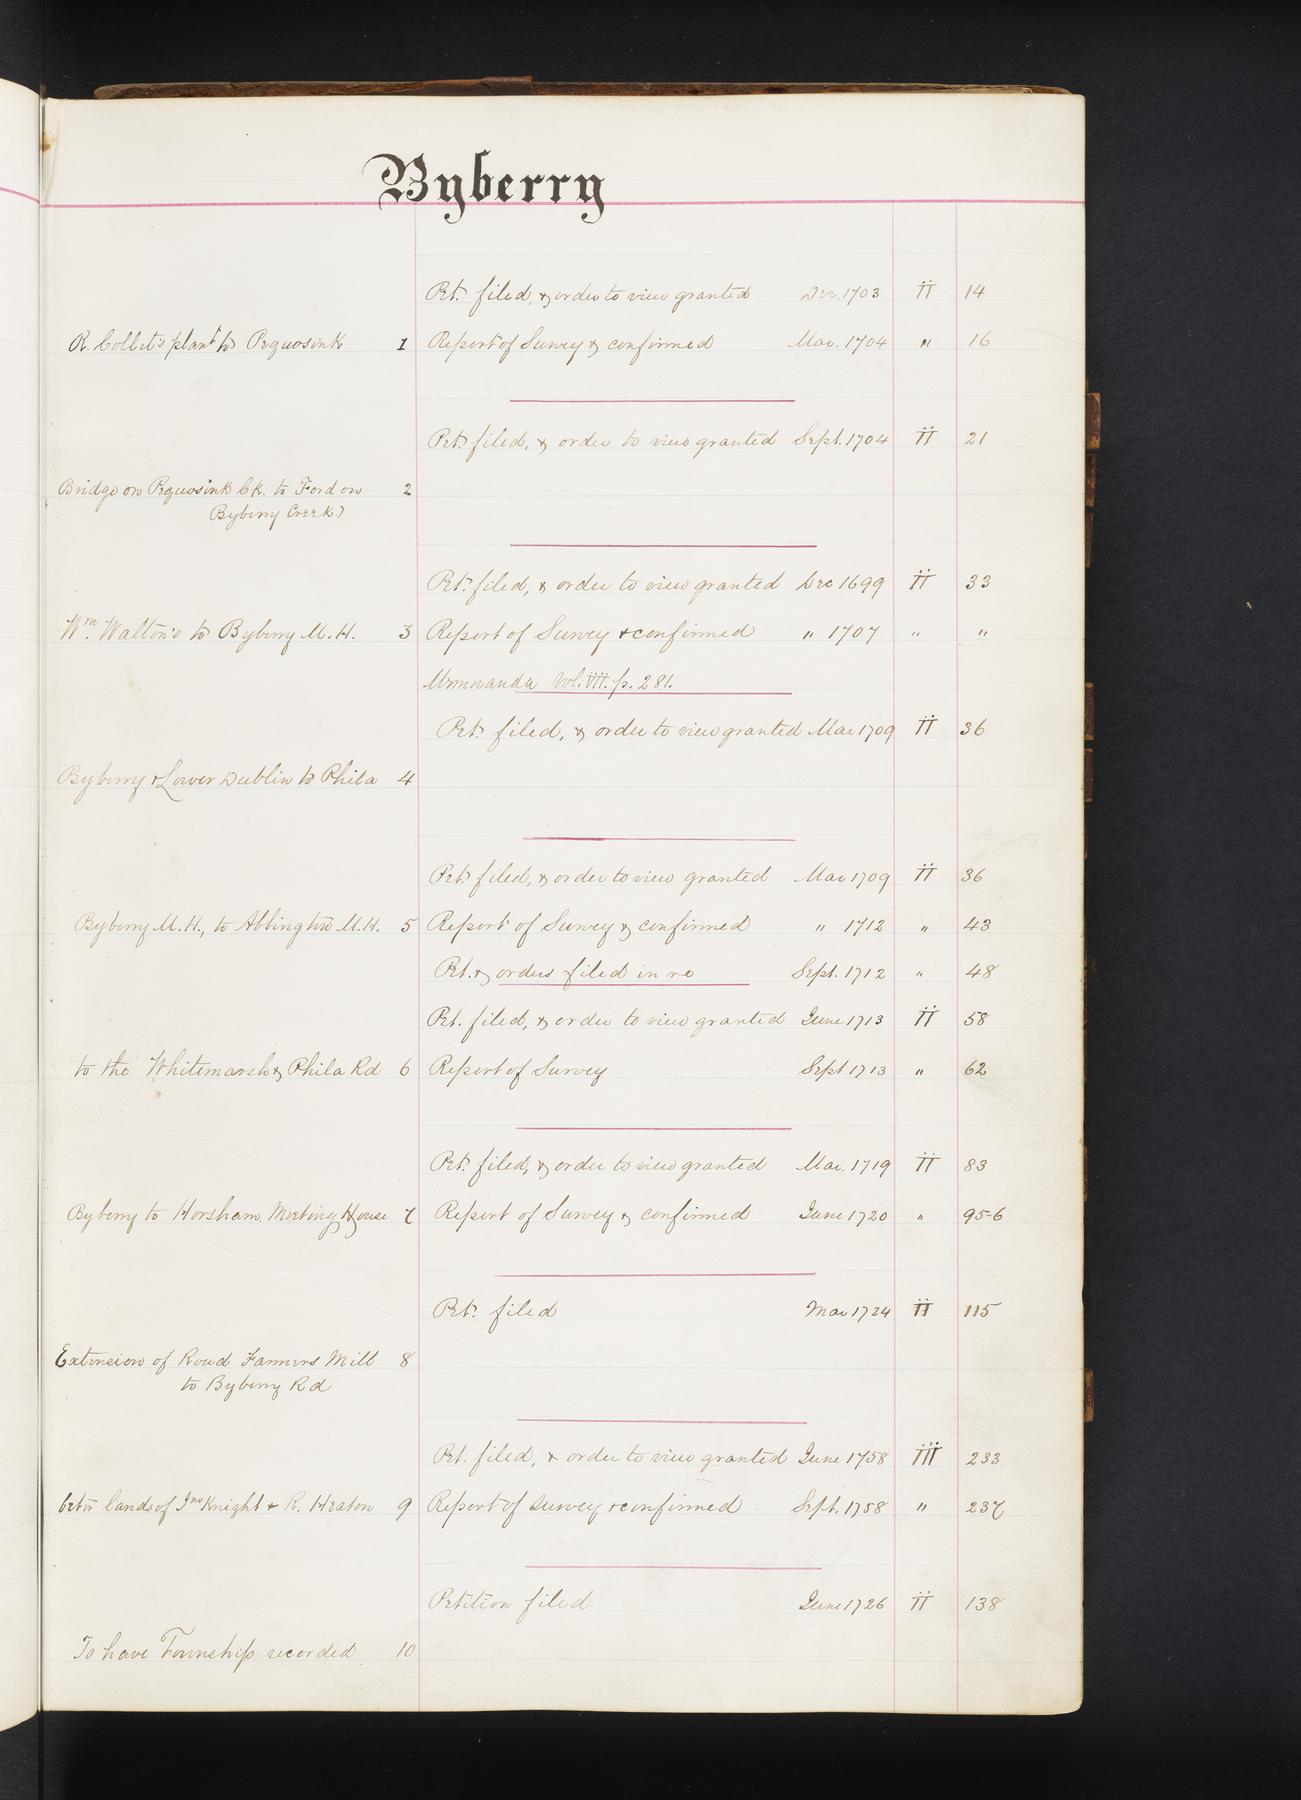 Byberry
Pet. filed, & order to view granted Dec. 1703 II 14
R. Collet's plant to Pequosink 1 Report of Survey & confirmed Mar. 1704 " 16
Pet. filed, & order to view granted Sept. 1704 II 21
Bridge on Pequosink Ck. to Ford on 2
Byberry Creek)
Pet. filed, & order to view granted Dec 1699 II 33
Wm. Walton's to Byberry M. H. 3 Report of Survey & confirmed " 1707 " "
Memoranda Vol. VII. p. 281.
Pet. filed, & order to view granted Mar 1709 II 36
Byberry & Lower Dublin to Phila 4
Pet. filed, & order to view granted Mar 1709 II 36
Byberry M. H., to Abbington M. H. 5 Report of Survey & confirmed " 1712 " 43
Pet. & orders filed in re Sept. 1712 " 48
Pet. filed, & order to view granted June 1713 II 58
to the Whitemarsh & Phila Rd 6 Report of Survey Sept 1713 " 62
Pet. filed, & order to view granted Mar. 1719 II 83
Byberry to Horsham Meeting House 7 Report of Survey & confirmed June 1720 " 95-6
Pet. filed Mar 1724 II 115
Extension of Road Farmers Mill 8
to Byberry Rd
Pet. filed, & order to view granted June 1758 III 233
betw lands of Jno Knight & R. Heaton 9 Report of Survey & confirmed Sept. 1758 " 237
Petition filed June 1726 II 138
To have Township recorded 10